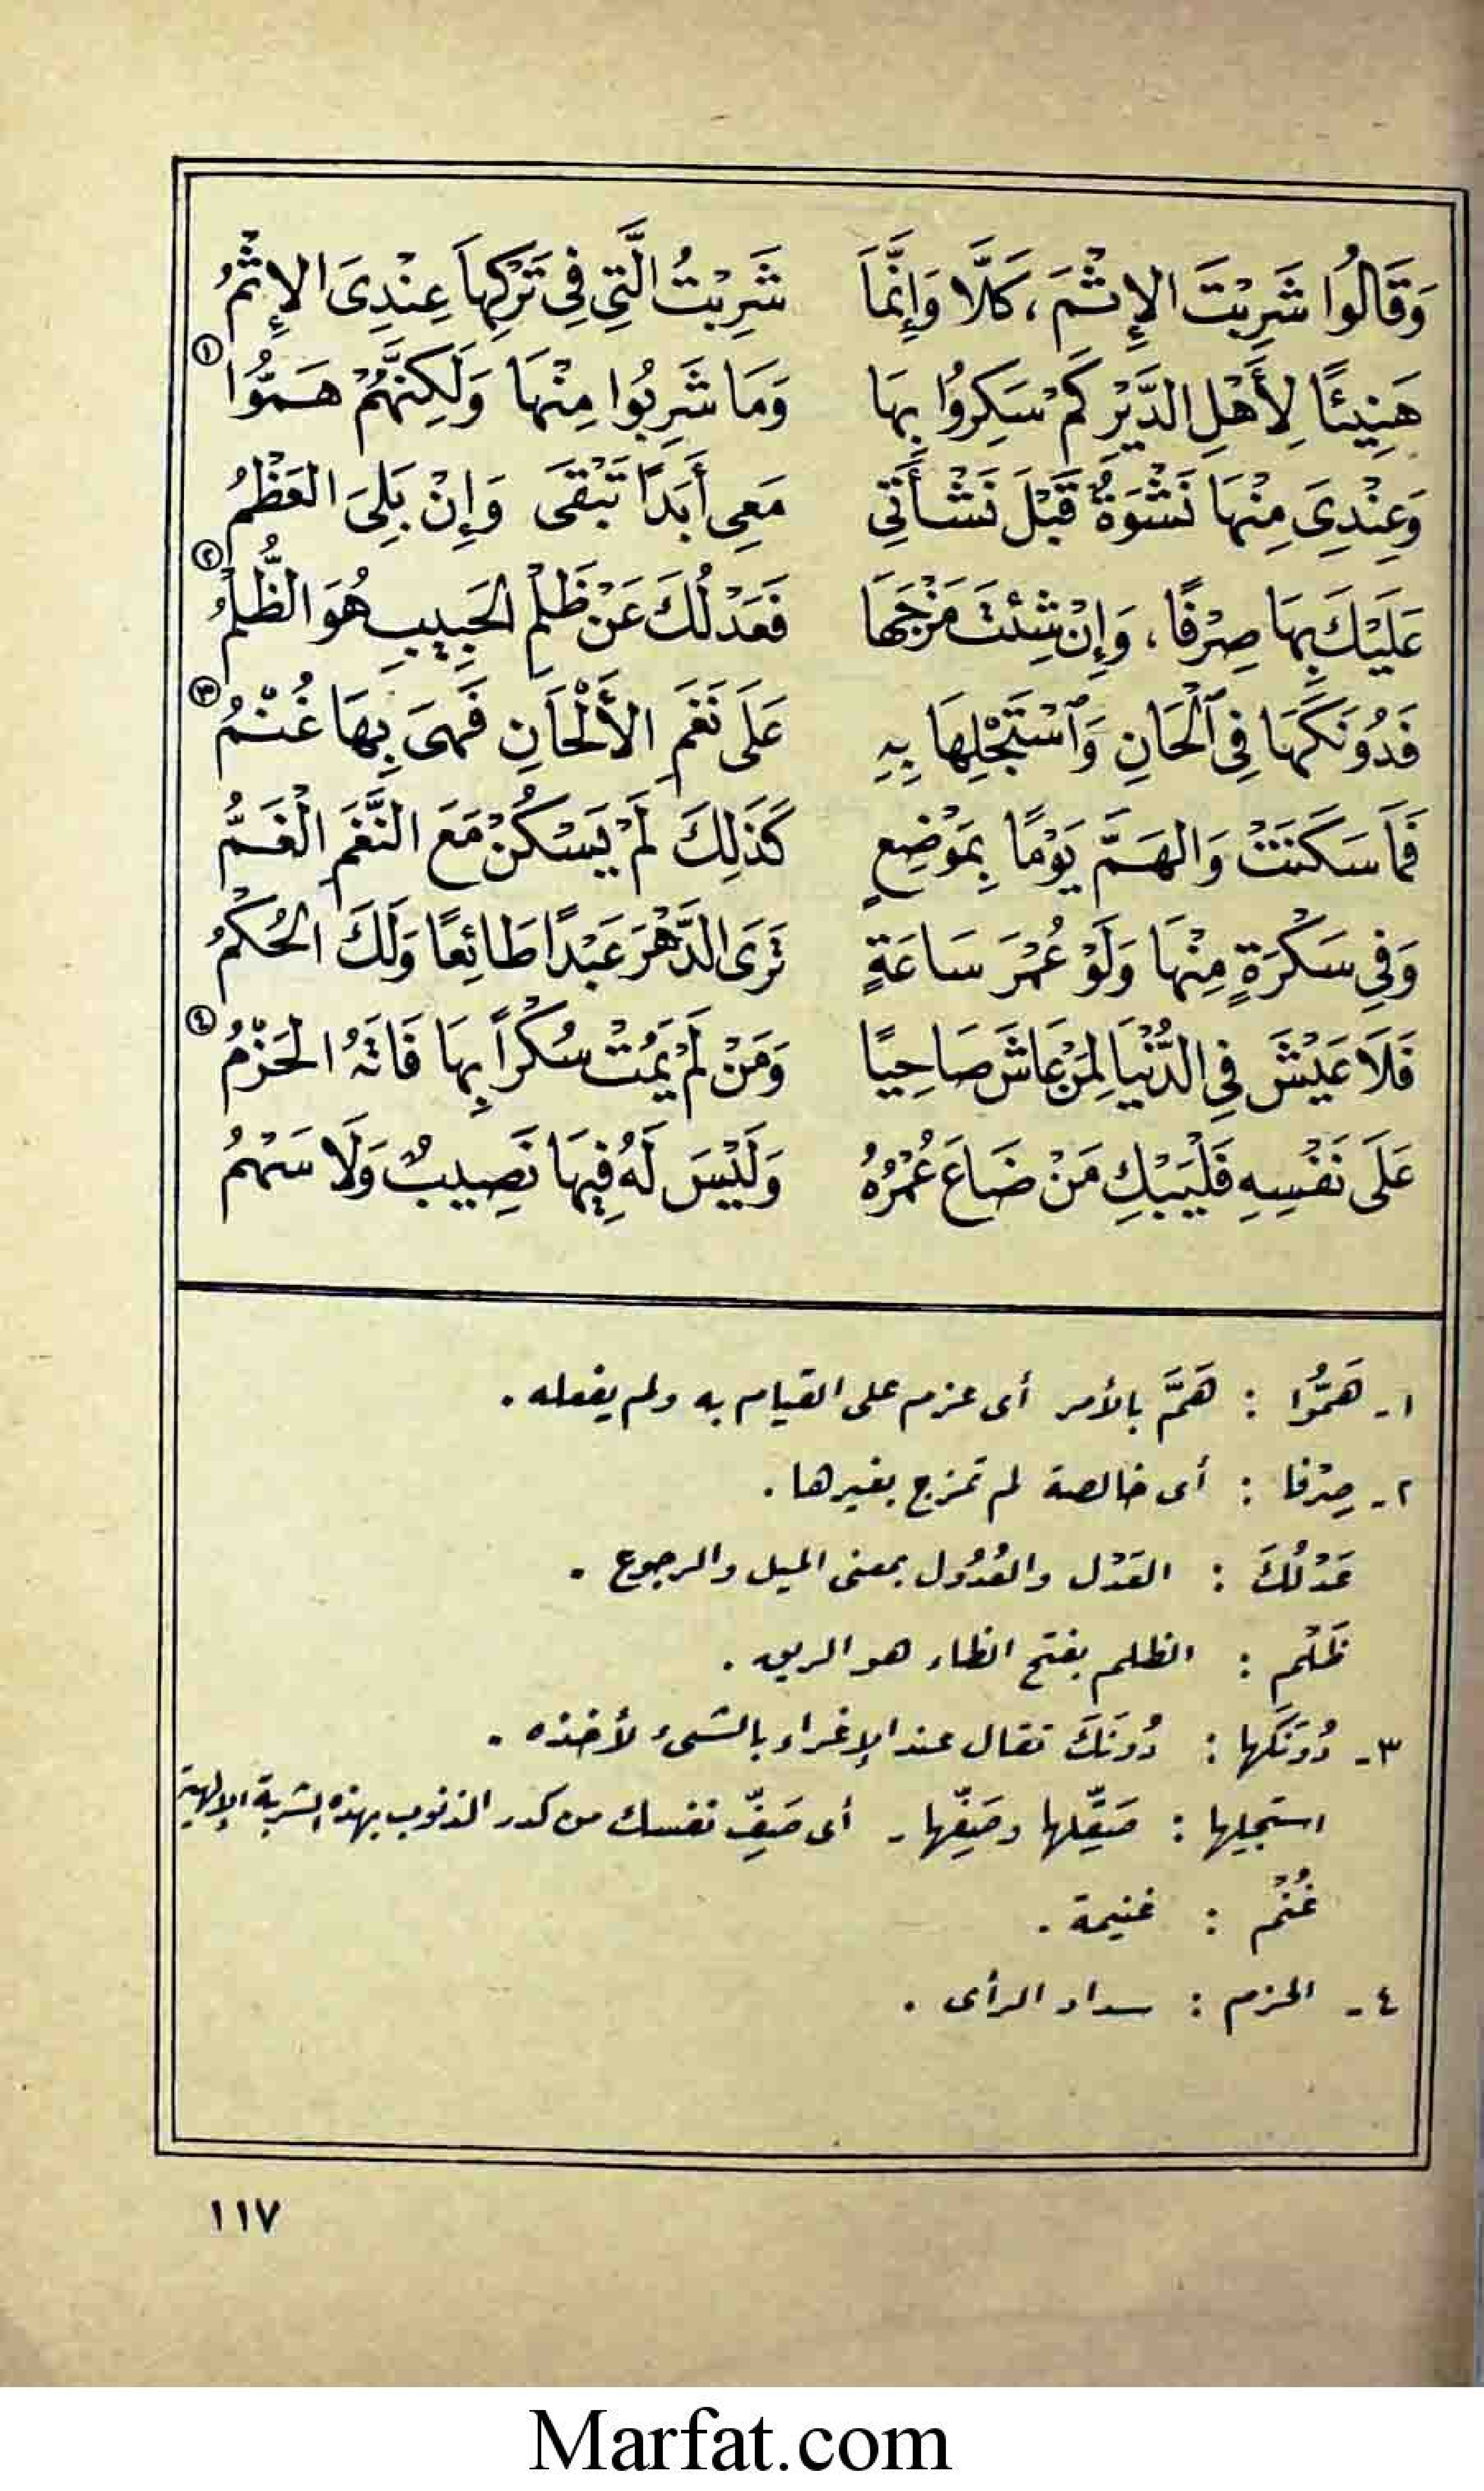 وَقَالُوا شَرِبْتَ الإِثْمَ ، كَلَّا وَإِنَّمَا شَرِبْتُ الَّتِي فِي تَرْكِهَا عِنْدِىَ الإِثْمُ
هَنِيئًا لِأَهْلِ الدَّيْرِ كَمْ سَكِرُوا بِهَا وَمَا شَرِبُوا مِنْهَا وَلَكِنَّهُمْ هَمُّوا ①
وَعِنْدِىَ مِنْهَا نَشْوَةٌ قَبْلَ نَشْأَتِي مَعِى أَبَدًا تَبْقَى وَإِنْ بَلِىَ العَظْمُ
عَلَيْكَ بِهَا صِرْفًا ، وَإِنْ شِئْتَ مَزْجَهَا فَعَدْلُكَ عَنْ ظَلْمِ الحَبِيبِ هُوَ الظُّلْمُ ②
فَدُونَكَهَا فِي ٱلْحَانِ وَٱسْتَجْلِهَا بِهِ عَلَى نَغَمِ الأَلْحَانِ فَهِىَ بِهَا غُنْمُ ③
فَمَا سَكَنَتْ وَالهَمَّ يَوْمًا بِمَوْضِعٍ كَذَلِكَ لَمْ يَسْكُنْ مَعَ النَّغَمِ الْغَمُّ
وَفِي سَكْرَةٍ مِنْهَا وَلَوْ عُمْرَ سَاعَةٍ تَرَى الدَّهْرَ عَبْدًا طَائِعًا وَلَكَ الحُكْمُ
فَلَا عَيْشَ فِي الدُّنْيَا لِمَنْ عَاشَ صَاحِيًا وَمَنْ لَمْ يَمُتْ سُكْرًا بِهَا فَاتَهُ الحَزْمُ ④
عَلَى نَفْسِهِ فَلْيَبْكِ مَنْ ضَاعَ عُمْرُهُ وَلَيْسَ لَهُ فِيهَا نَصِيبٌ وَلَا سَهْمُ
١- هَمُّوا : هَمَّ بالأمر أى عزم على القيام به ولم يفعله .
٢- صِرْفا : أى خالصة لم تمزج بغيرها .
عَدْلُكَ : العَدْل والعُدُول بمعنى الميل والرجوع .
ظَلْم : الظلم بفتح الظاء هو الريق .
٣- دُونَكَها : دُونَكَ تقال عند الإغراء بالشىء لأخذه .
استجلِها : صَقِّلها وصَفِّها - أى صَفِّ نفسك من كدر الذنوب بهذه الشربة الإلهية
غُنْم : غنيمة .
٤- الحزم : سداد الرأى .
١١٧
Marfat.com